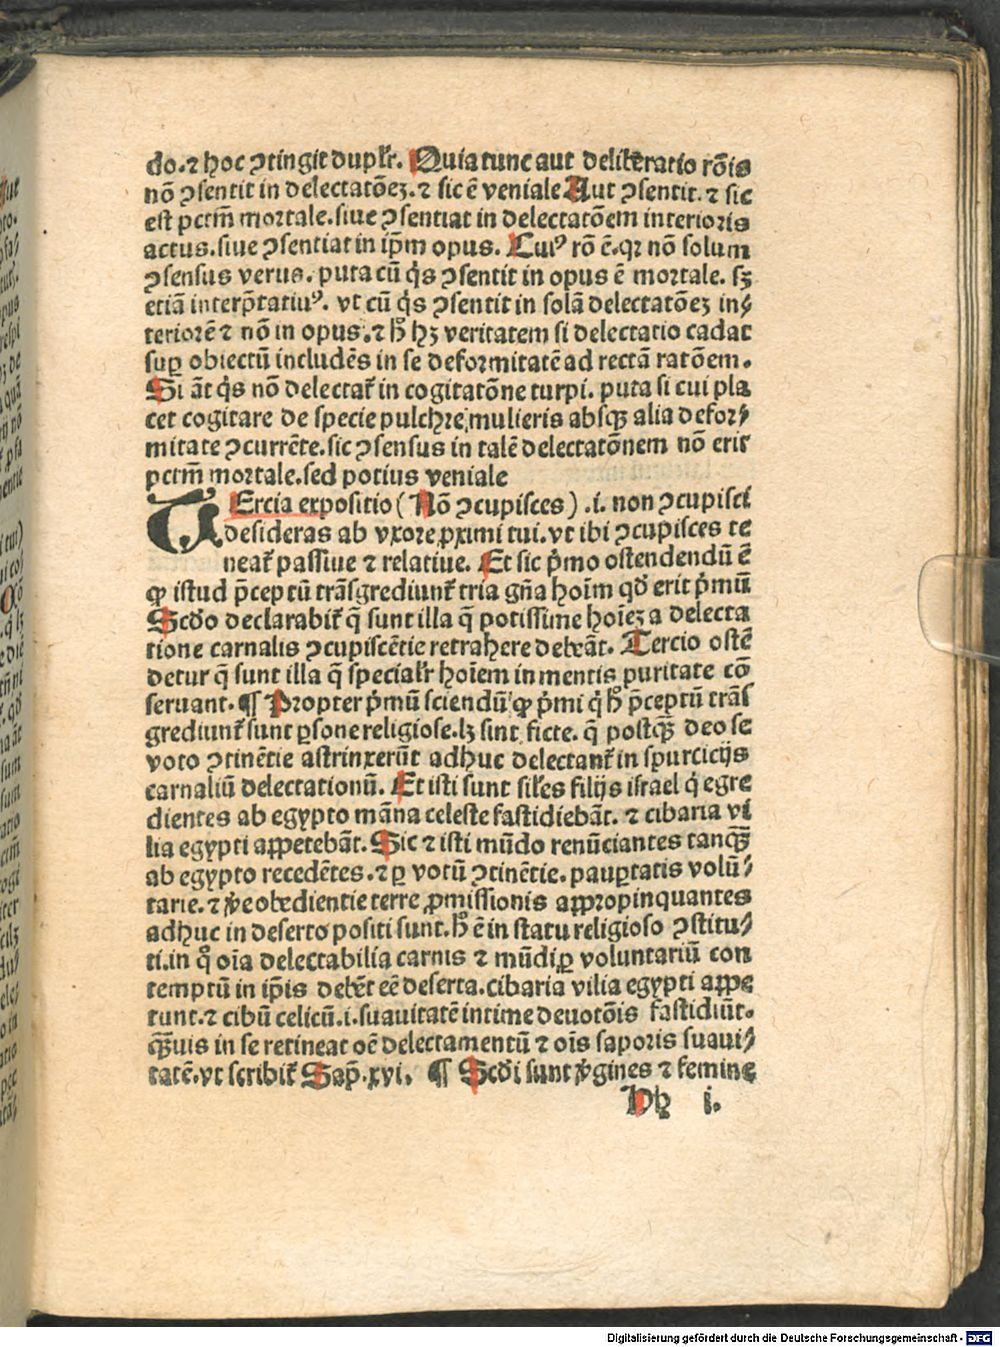 do.⁊ hoc ꝯtingit duplr̄. Quia tunc aut deliberatio rōis
nō ꝯsentit in delectatōeꝫ.⁊ sic ē veniale Aut ꝯsentit.⁊ sic
est pctm̄ mortale.siue ꝯsentiat in delectatōem interioris
actus.siue ꝯsentiat in ip̄m opus. Cuiꝰ rō ē.qꝛ nō solum
ꝯsensus verus. puta cū q̇s ꝯsentit in opus ē mortale. sꝫ
etiā interp̄tatiuꝰ. vt cū q̇s ꝯsentit in solā delectatōeꝫ in⸗
teriorē ⁊ nō in opus.⁊ h̄ hꝫ veritatem si delectatio cadat
suꝑ obiectū includēs in se deformitatē ad rectā ratōem.
Si āt q̇s nō delectat᷑ in cogitatōne turpi. puta si cui pla
cet cogitare de specie pulchre mulieris absqꝫ alia defor⸗
mitate ꝯcurrēte.sic ꝯsensus in talē delectatōnem nō erit
pctm̄ mortale.sed potius veniale
TErcia expositio (Nō ꝯcupisces) .i. non ꝯcupisci
desideras ab vxore ꝓximi tui.vt ibi ꝯcupisces te
neat᷑ passiue ⁊ relatiue. Et sic ṗmo ostendendū ē
ꝙ istud p̄ceptū trāsgrediunt᷑ tria gn̄a hoīm qd̄ erit ṗmū
Scd̄o declarabit᷑ q̄ sunt illa q̄ potissime hoīeꝫ a delecta
tione carnalis ꝯcupiscētie retrahere debeāt. Tercio ostē
detur q̄ sunt illa q̄ specialr̄ hoīem in mentis puritate cō
seruant. ¶ Propter ṗmū sciendū ꝙ ṗmi q̇ hͦ p̄ceptū trās
grediunt᷑ sunt ꝑsone religiose.lꝫ sint ficte. q̄ postqꝫ̄ deo se
voto ꝯtinētie astrinxerūt adhuc delectant᷑ in spurcicijs
carnaliū delectationū. Et isti sunt siles filijs israel q̇ egre
dientes ab egypto māna celeste fastidiebāt. ⁊ cibaria vi
lia egypti appetebāt. Sic ⁊ isti mūdo renūciantes tanqꝫ̄
ab egypto recedētes.⁊ ꝑ votū ꝯtinētie. pauꝑtatis volū⸗
tarie.⁊ v̄e obedientie terre ꝓmissionis appropinquantes
adhuc in deserto positi sunt.h̄ ē in statu religioso ꝯstitu⸗
ti.in qͦ oīa delectabilia carnis ⁊ mūdi ꝑ voluntariū con
temptū in ip̄is debēt eē deserta.cibaria vilia egypti appe
tunt.⁊ cibū celicū.i.suauitatē intime deuotōis fastidiūt.
qꝫ̄uis in se retineat oē delectamentū ⁊ oīs saporis suaui⸗
tatē.vt scribit᷑ Sap̄.xvi. ¶ Scd̄i sunt v̄gines ⁊ femine
Hh i.
Digitalisierung gefördert durch die Deutsche Forschungsgemeinschaft - DFG